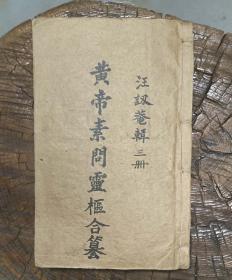 汪訒菴輯三册
黃帝素問靈樞合纂